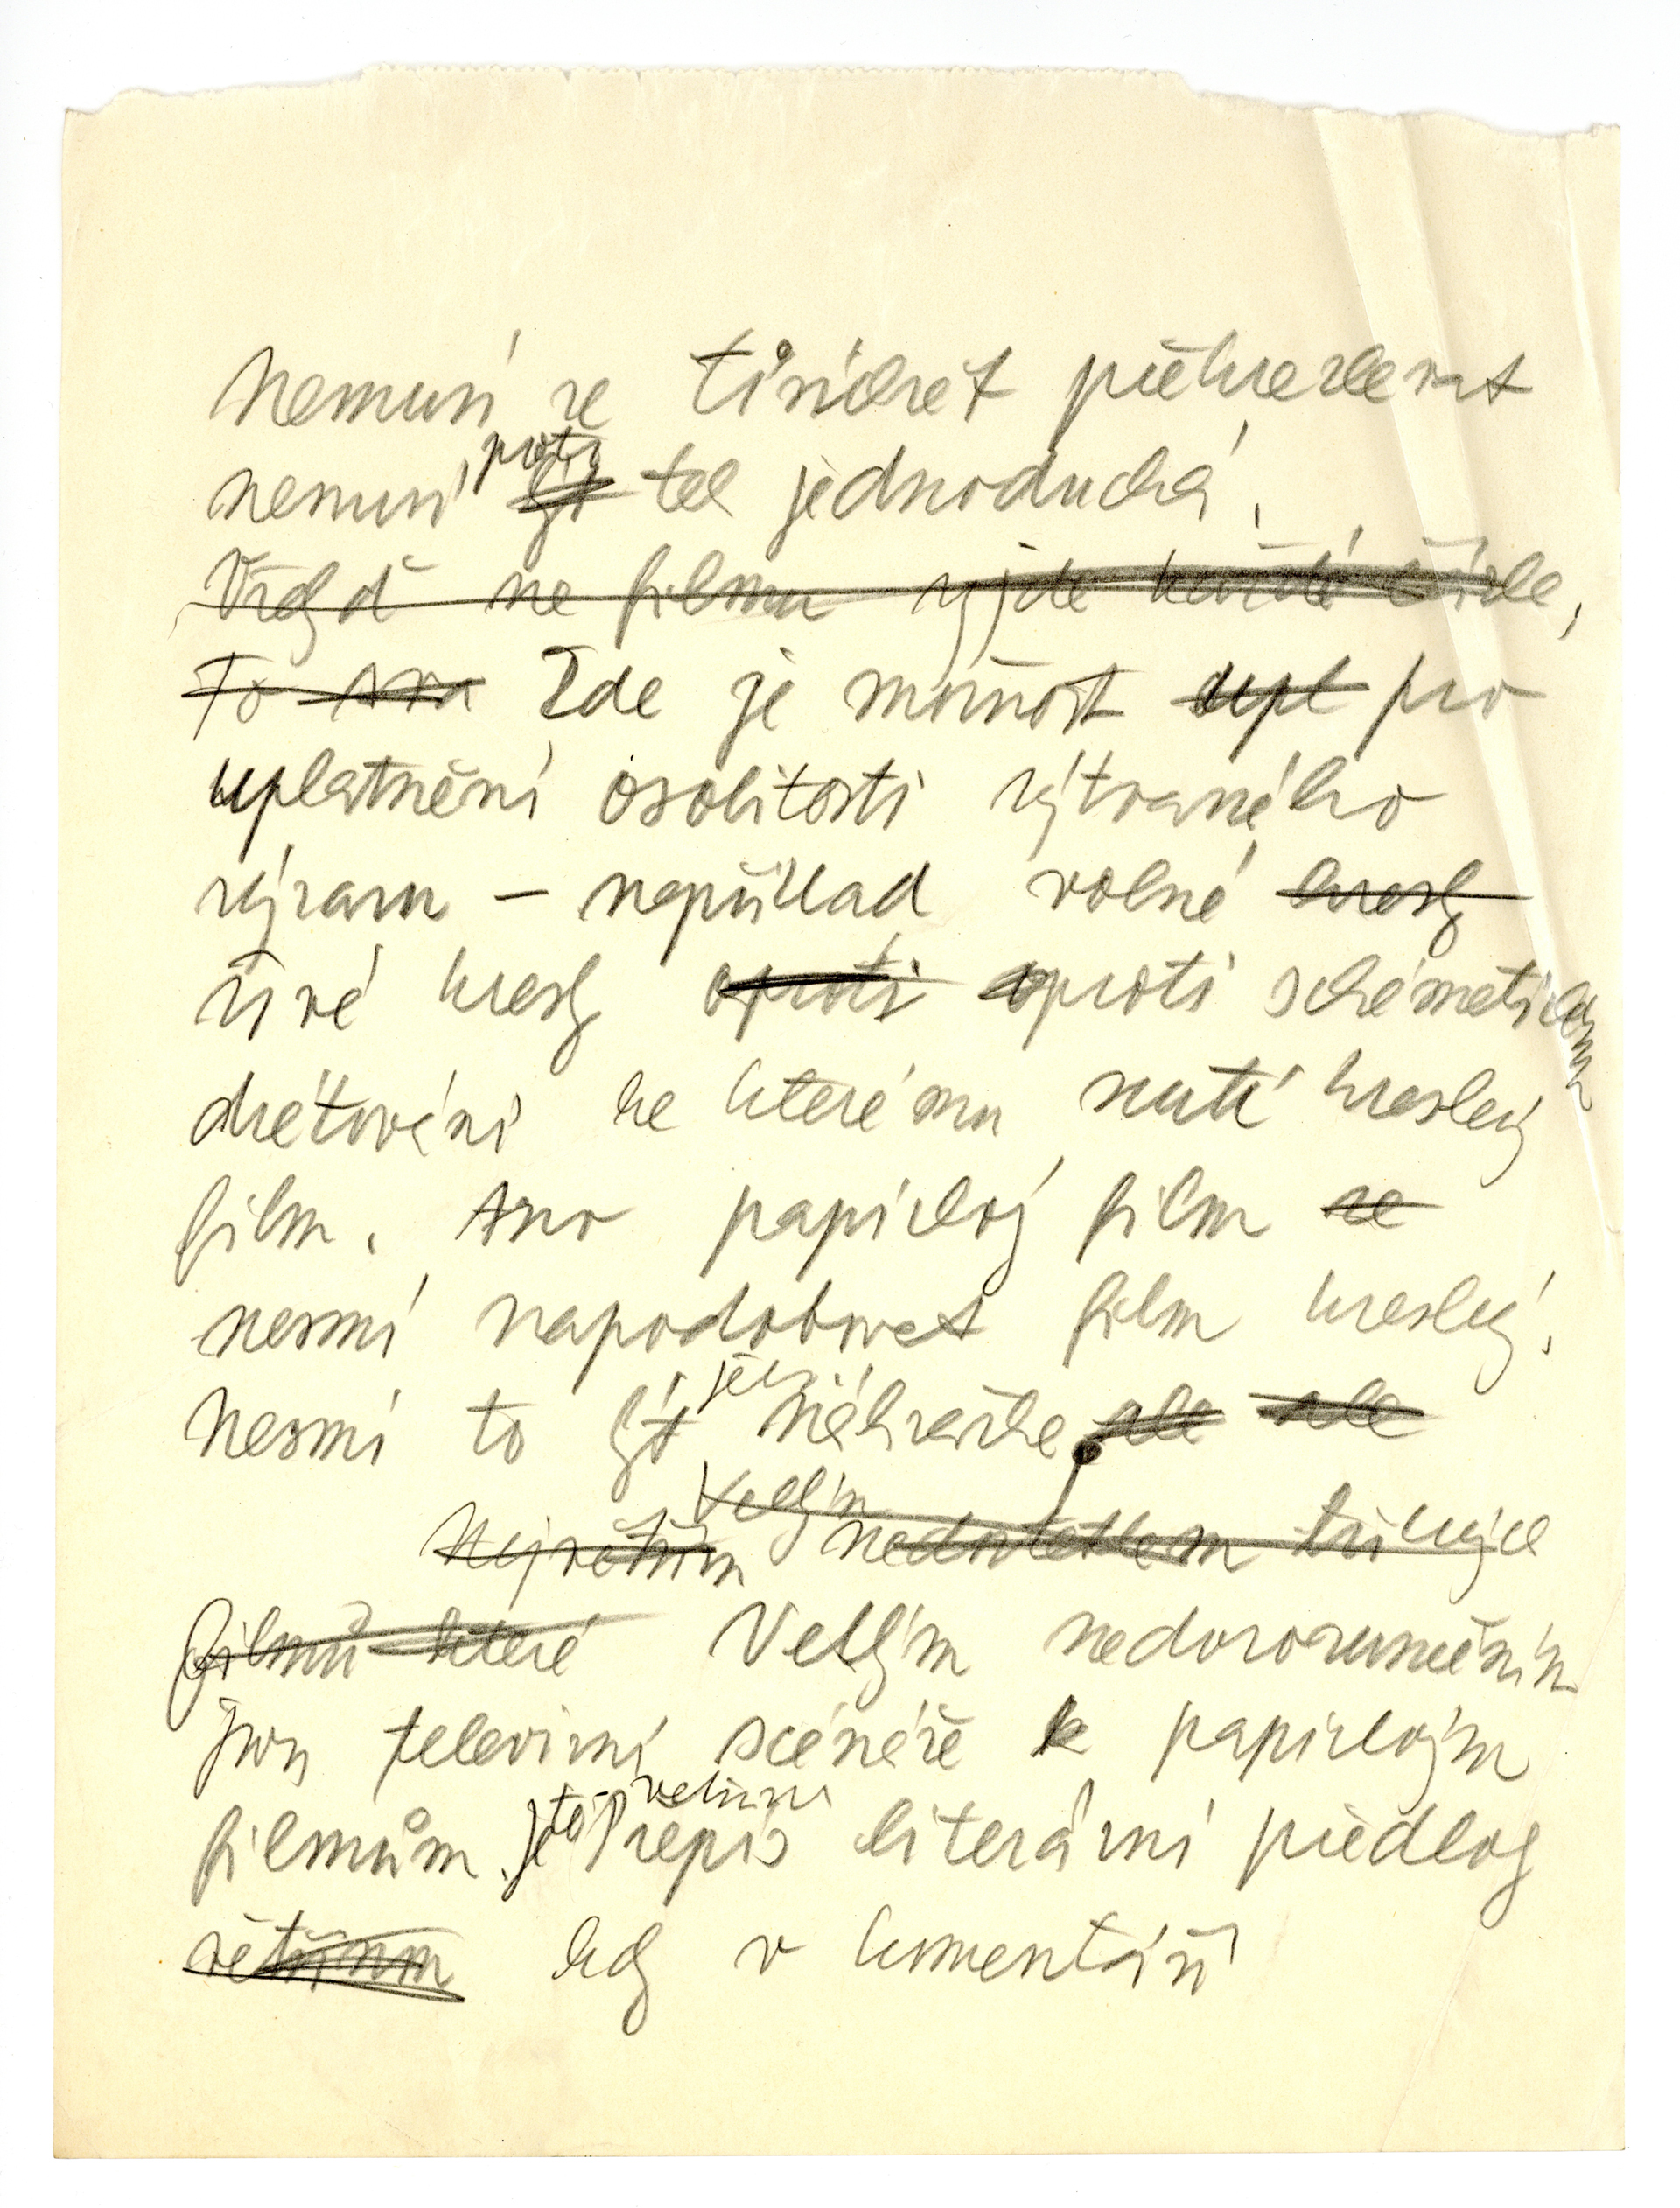 Nemusí se tisíckrát překreslovat
nemusí proto být tak jednoduchá.
Vždyť na filmu vyjde každé číslo,
To zna Zde je možnost upl pro
uplatnění osobitosti výtvarného
výrazu – například volné kresby
živé kresby oproti oproti schématickému
drátování ke kterému nutí kreslený
film. Ano papírkový film se
nesmí napodobovat film kreslený.
Nesmí to být jen náhražka ale ale
Největším Velkým nedostatkem
filmů které Velkým nedorozuměním
jsou televizní scénáře k papírkovým
filmům. Je to přepis většinou literární předlohy
většinou kdy v komentáři